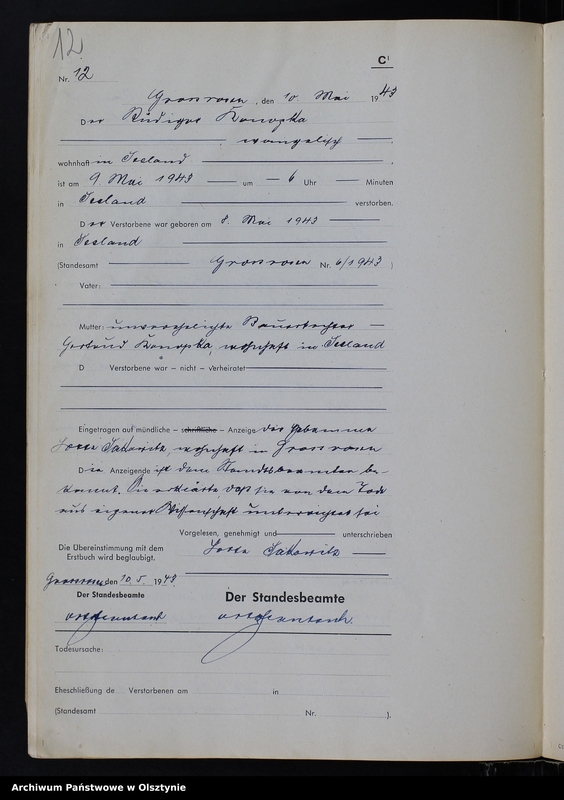 12
C¹
Nr. 12
Grossrosen, den 10. Mai 1943
Der Rüdiger Konopka
evangelisch
wohnhaft in Seeland
ist am 9. Mai 1943 um 6 Uhr Minuten
in Seeland verstorben.
Der Verstorbene war geboren am 8. Mai 1943
in Seeland
(Standesamt Grossrosen Nr. 6/1943)
Vater:
Mutter: unverehelichte Bauerstochter
Gertrud Konopka, wohnhaft in Seeland
D Verstorbene war – nicht – verheiratet
Eingetragen auf mündliche – schriftliche – Anzeige der Hebamme
wohnhaft in Grossrosen
Die Anzeigende ist dem Standesbeamten be-
kannt. Sie erklärte, daß sie von dem Tode
aus eigener Wissenschaft unterrichtet sei
Vorgelesen, genehmigt und unterschrieben
Die Übereinstimmung mit dem
Erstbuch wird beglaubigt.
Grossrosen den 10.5. 1943.
Der Standesbeamte
Der Standesbeamte
Todesursache:
Eheschließung de Verstorbenen am in
(Standesamt Nr. ).
Archiwum Państwowe w Olsztynie